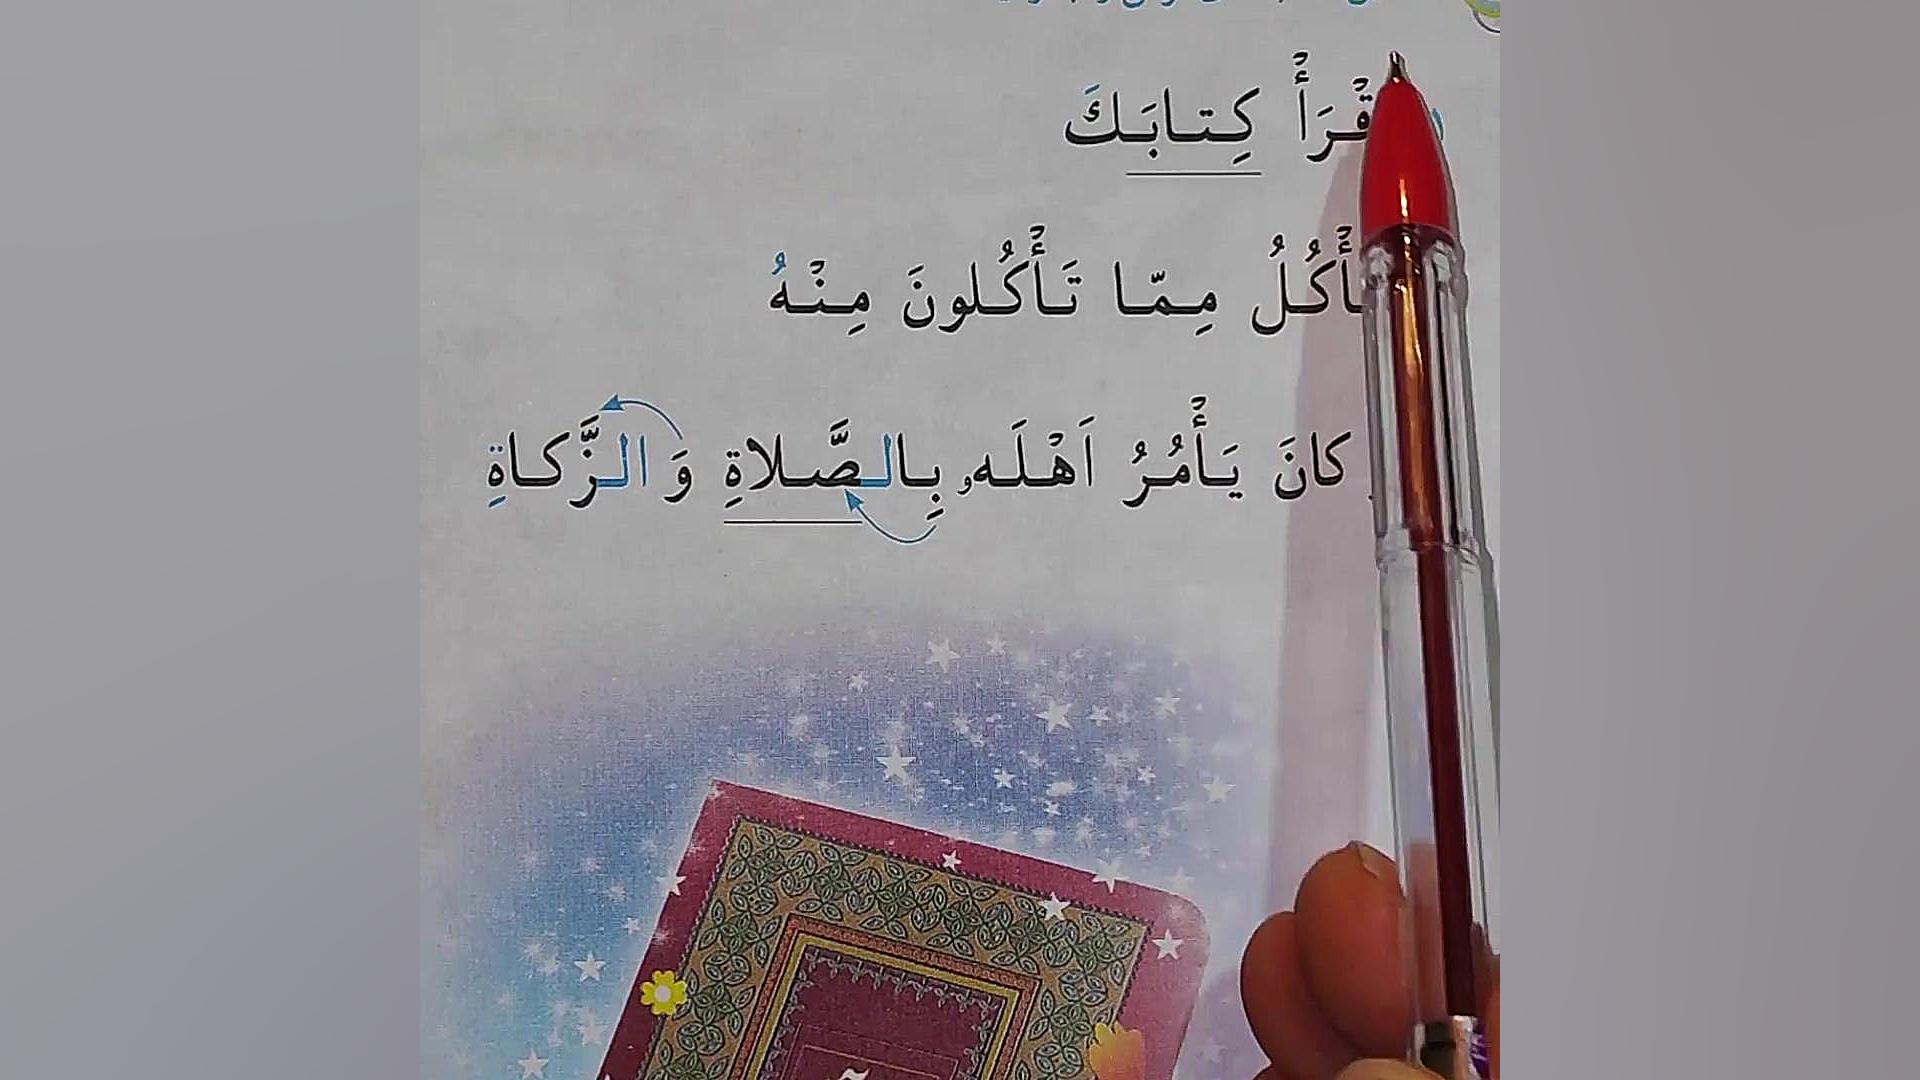 كِتابَكَ
مِمّا تَأْكُلونَ مِنْهُ
كانَ يَأْمُرُ اَهْلَهو بِالصَّلاةِ وَ الزَّكاةِ